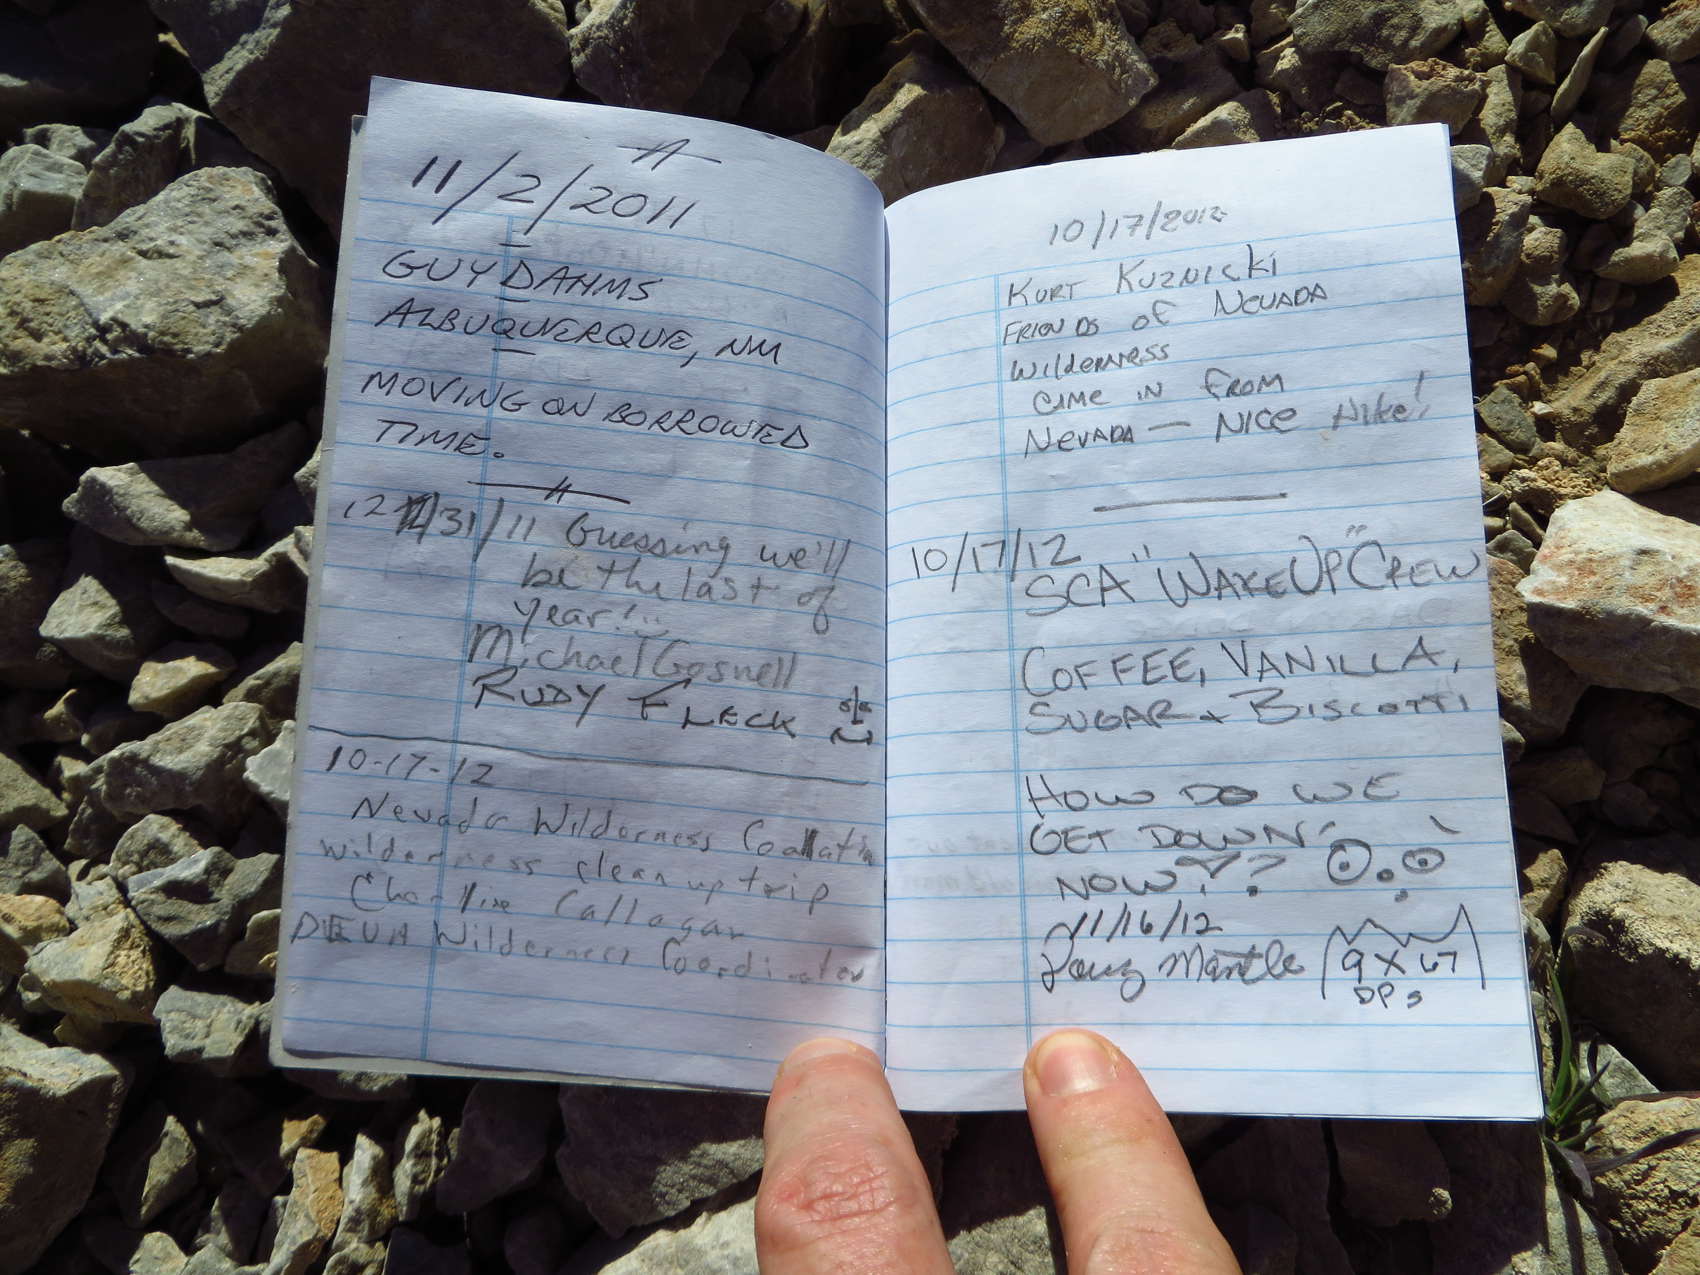 11/2/2011
GUY DAHMS
ALBUQUERQUE, NM
MOVING ON BORROWED
TIME.
12/31/11 Guessing we'll
be the last of
year!
Michael Gosnell
RUDY FLECK
10-17-12
Nevada Wilderness Coalation
wilderness clean up trip
Charline Callagar
DEVA Wilderness Coordinator
10/17/2012
KURT KUZNICKI
FRIENDS OF NEVADA
WILDERNESS
CAME IN FROM
NEVADA — NICE Hike!
10/17/12
SCA "WAKEUP" CREW
COFFEE, VANILLA,
SUGAR + BISCOTTI
HOW DO WE
GET DOWN
NOW??
11/16/12
Doug Mantle 9 X 67
DPs